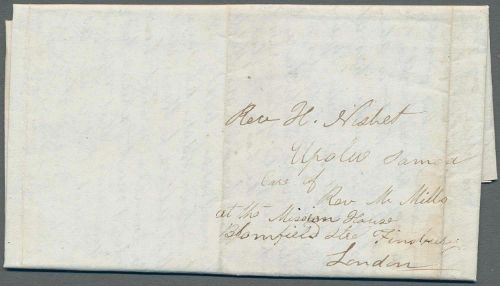 Rev H. Nisbet
Upolu Samoa
Care of
Rev Mr Mills
at the Mission House
Blomfield Stre Finsbury
London